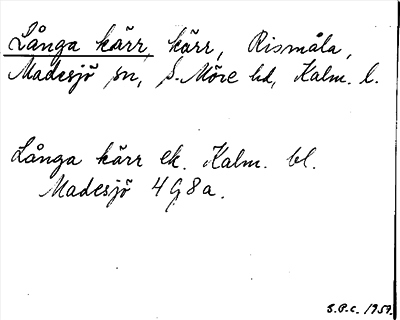 Långa kärr, kärr, Rismåla,
Madesjö sn, S. Möre hd, Kalm. l.
Långa kärr ek. Kalm. bl.
Madesjö 4G8a.
S.P.C. 1959.